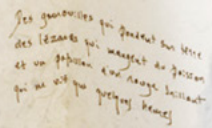 Des grenouilles qui pondent sur terre
des lézards qui mangent du poisson
et un papillon d'un rouge brillant
qui ne vit que quelques heures